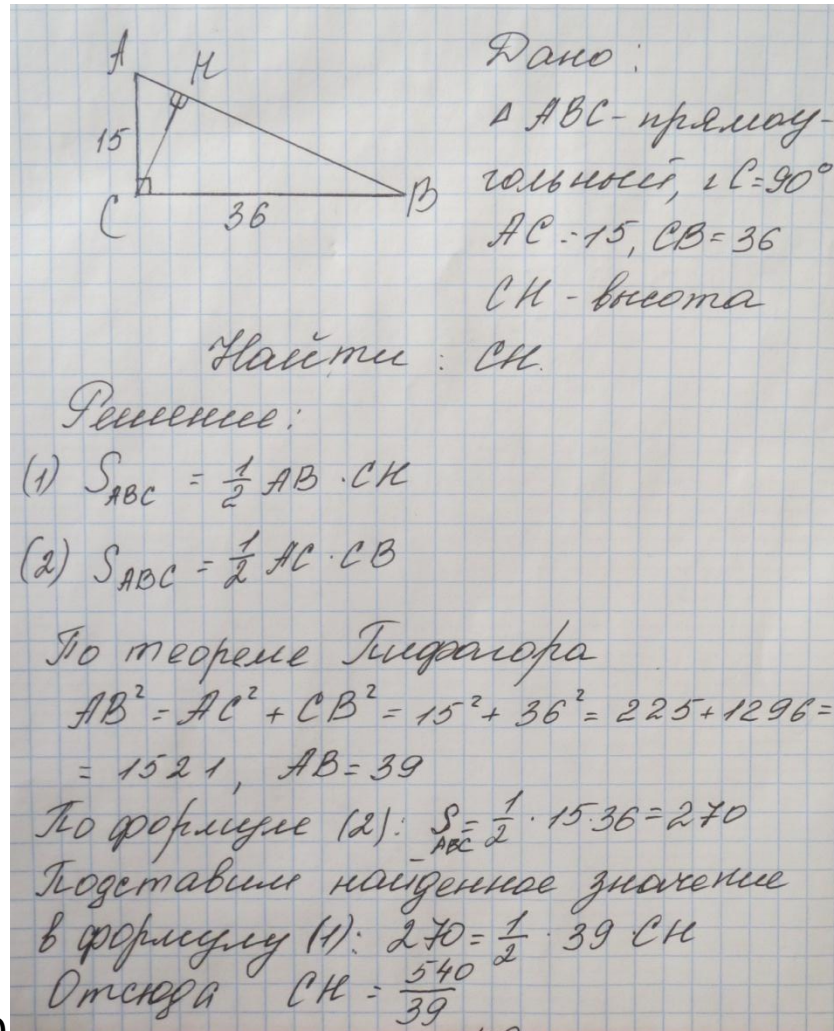 А Н
Дано:
15
Δ ABC - прямоу-
гольный, ∠C=90°
C 36 B
AC = 15, CB = 36
CH - высота
Найти: CH.
Решение:
(1) S_ABC = 1/2 AB · CH
(2) S_ABC = 1/2 AC · CB
По теореме Пифагора
AB² = AC² + CB² = 15² + 36² = 225 + 1296 =
= 1521, AB = 39
По формуле (2): S_ABC = 1/2 · 15 · 36 = 270
Подставим найденное значение
в формулу (1): 270 = 1/2 · 39 · CH
Отсюда CH = 540/39